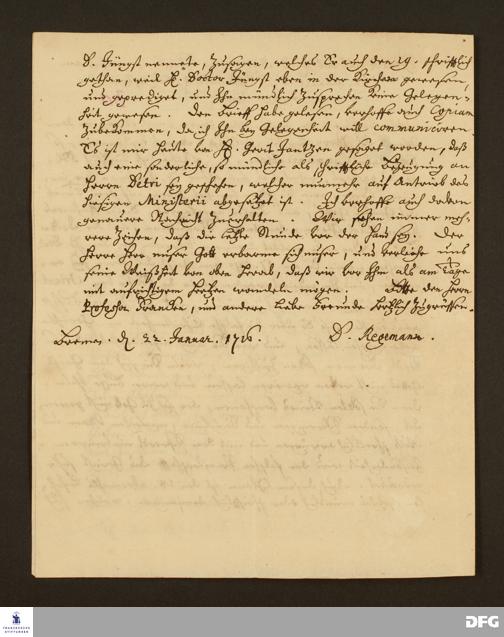 D. Jüngst nennete, zusagen, welches Er auch den 19. schrifftlich
gethan, weil H. Doctor Jüngst eben in der Kirchen gewesen,
und geprediget, und Ihn mündlich zusprechen keine Gelegen-
heit gewesen. Den Brieff habe gelesen, verhoffe auch Copiam
zubekommen, da ich Ihn bey Gelegenheit will communiciren.
Es ist mir heute von H. Gerit Jantzen gesaget worden, daß
auch eine sonderliche, so mündliche als schrifftliche Bezeugung an
Herrn Petri sey geschehen, welcher nunmehr auf Antrieb des
hiesigen Ministerii abgesetzet ist. Ich verhoffe auch
genauere Nachricht zuerhalten. Wir sehen immer meh-
rere Zeichen, daß die letzte Stunde vor der sey. Der
Herr unser Gott erbarme sich unser, und verleihe uns
seine Weißheit von oben herab, daß wir vor Ihm als am Tage
mit aufrichtigem Hertzen wandeln mögen. Bitte den Herrn
Professor Francken, und andere liebe Freunde hertzlich zugrüssen.
Bremen. d. 22. Januar. 1716. D. Regemann.
FRANCKESCHE STIFTUNGEN
DFG